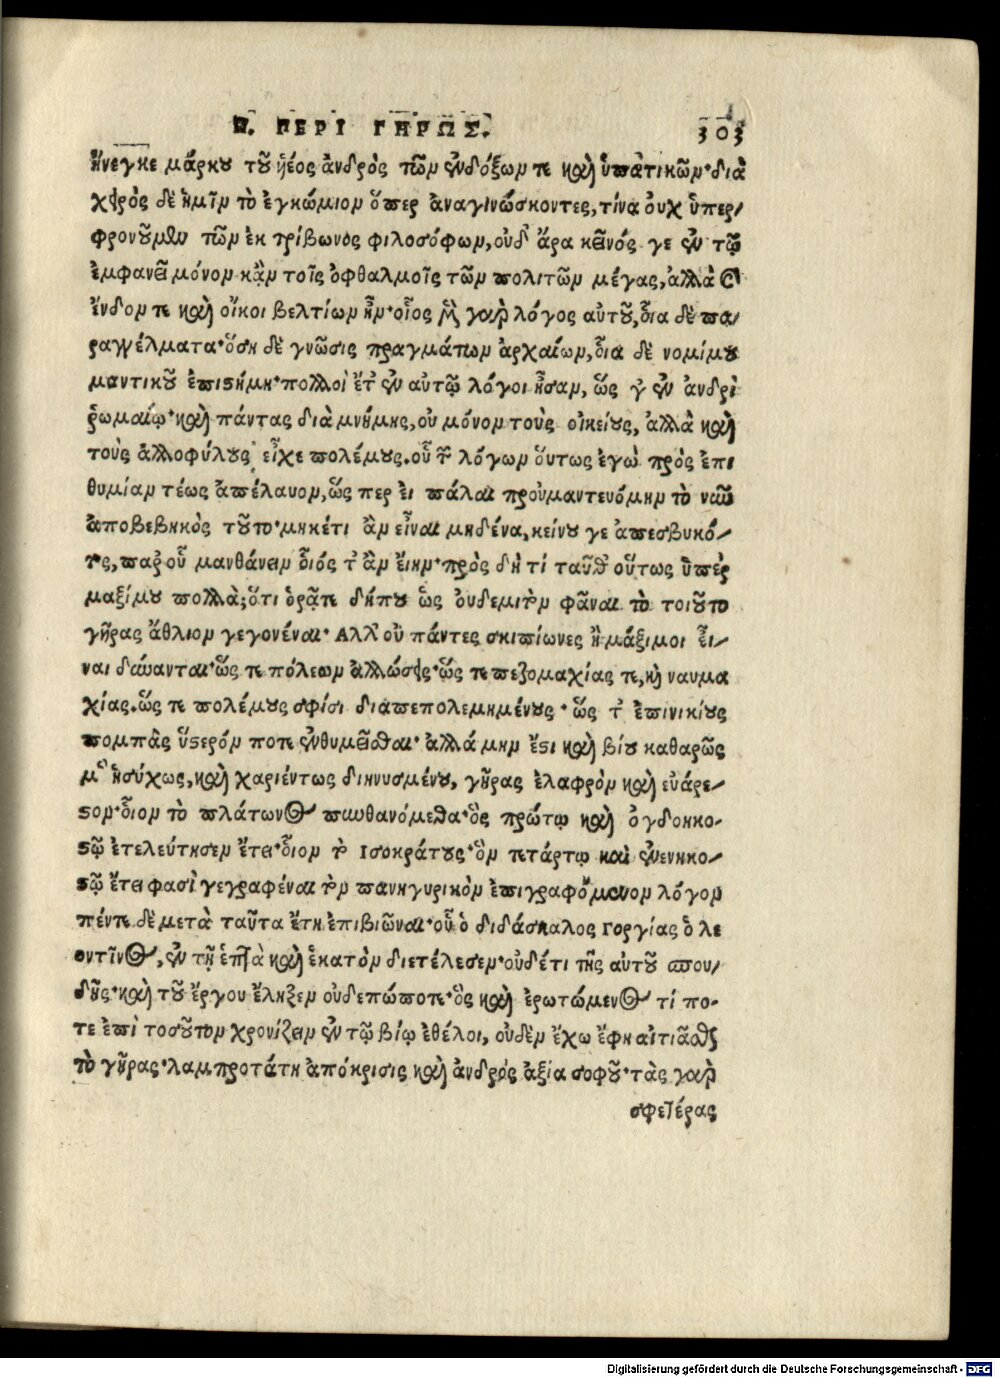 Π. ΠΕΡΙ ΓΗΡΩΣ. 303
ἤνεγκε μάρκου τοῦ ἡέος ἀνδρὸς τῶν ἐνδόξων τε καὶ ὑπατικῶν· διὰ
χειρὸς δὲ ἡμῖν τὸ ἐγκώμιον ὅπερ ἀναγινώσκοντες, τίνα οὐχ ὑπερ-
φρονοῦμεν τῶν ἐκ τρίβωνος φιλοσόφων, οὐδ' ἄρα κεῖνός γε ἐν τῷ
ἐμφανεῖ μόνον κἂν τοῖς ὀφθαλμοῖς τῶν πολιτῶν μέγας, ἀλλὰ καὶ
ἔνδον τε καὶ οἴκοι βελτίων ἦν· οἷος μὲν γὰρ λόγος αὐτοῦ, οἷα δὲ πα-
ραγγέλματα· ὅση δὲ γνῶσις πραγμάτων ἀρχαίων, οἷα δὲ νομίμου
μαντικοῦ ἐπιστήμη· πολλοὶ ἔτ' ἐν αὐτῷ λόγοι ἦσαν, ὥς γ' ἐν ἀνδρὶ
ῥωμαίῳ· καὶ πάντας διὰ μνήμης, οὐ μόνον τοὺς οἰκείους, ἀλλὰ καὶ
τοὺς ἀλλοφύλους εἶχε πολέμους. οὗ τῶν λόγων οὕτως ἐγὼ πρὸς ἐπι
θυμίαν τέως ἀπέλαυον, ὥς περ εἰ πάλαι προὐμαντευόμην τὸ νῦν
ἀποβεβηκὸς τοῦτο· μηκέτι ἂν εἶναι μηδένα, κείνου γε ἀπεσβυκό-
τος, παρ' οὗ μανθάνειν οἷός τ' ἂν εἴην· πρὸς δὴ τί ταῦθ' οὕτως ὑπὲρ
μαξίμου πολλὰ; ὅτι ὁρᾶτε δήπου ὡς οὐδεμιτὸν φᾶναι τὸ τοιοῦτο
γῆρας ἄθλιον γεγονέναι· Αλλ' οὐ πάντες σκιπίωνες ἢ μάξιμοι εἶ-
ναι δύνανται· ὥς τε πόλεων ἁλώσεις· ὥς τε πεζομαχίας τε, καὶ ναυμα
χίας. ὥς τε πολέμους σφίσι διαπεπολεμημένους· ὥς τ' ἐπινικίους
πομπὰς ὕστερόν ποτε ἐνθυμεῖσθαι· ἀλλά μὴν ἔστι καὶ βίου καθαρῶς
μεθ' ἡσύχως, καὶ χαριέντως διηνυσμένου, γῆρας ἐλαφρὸν καὶ εὐάρε-
στον· οἷον τὸ πλάτωνος πυνθανόμεθα· ὃς πρώτῳ καὶ ὀγδοηκο-
στῷ ἐτελεύτησεν ἔτει· οἷον τὸ Ισοκράτους· ὃν τετάρτῳ καὶ ἐνενηκο-
στῷ ἔτει φασὶ γεγραφέναι τὸν πανηγυρικὸν ἐπιγραφόμενον λόγον
πέντε δὲ μετὰ ταῦτα ἔτη ἐπιβιῶναι· οὗ ὁ διδάσκαλος Γοργίας ὁ λε
οντῖνος, ἐν τῇ ἑπτὰ καὶ ἑκατὸν διετέλεσεν· οὐδέτι τῆς αὑτοῦ σπου-
δῆς· καὶ τοῦ ἔργου ἔληξεν οὐδεπώποτε· ὃς καὶ ἐρωτώμενος τί πο-
τε ἐπὶ τοσοῦτον χρονίζειν ἐν τῷ βίῳ ἐθέλοι, οὐδὲν ἔχω ἔφη αἰτιᾶσθαι
τὸ γῆρας· λαμπροτάτη ἀπόκρισις καὶ ἀνδρὸς ἀξία σοφοῦ· τὰς γὰρ
σφετέρας
Digitalisierung gefördert durch die Deutsche Forschungsgemeinschaft - DFG